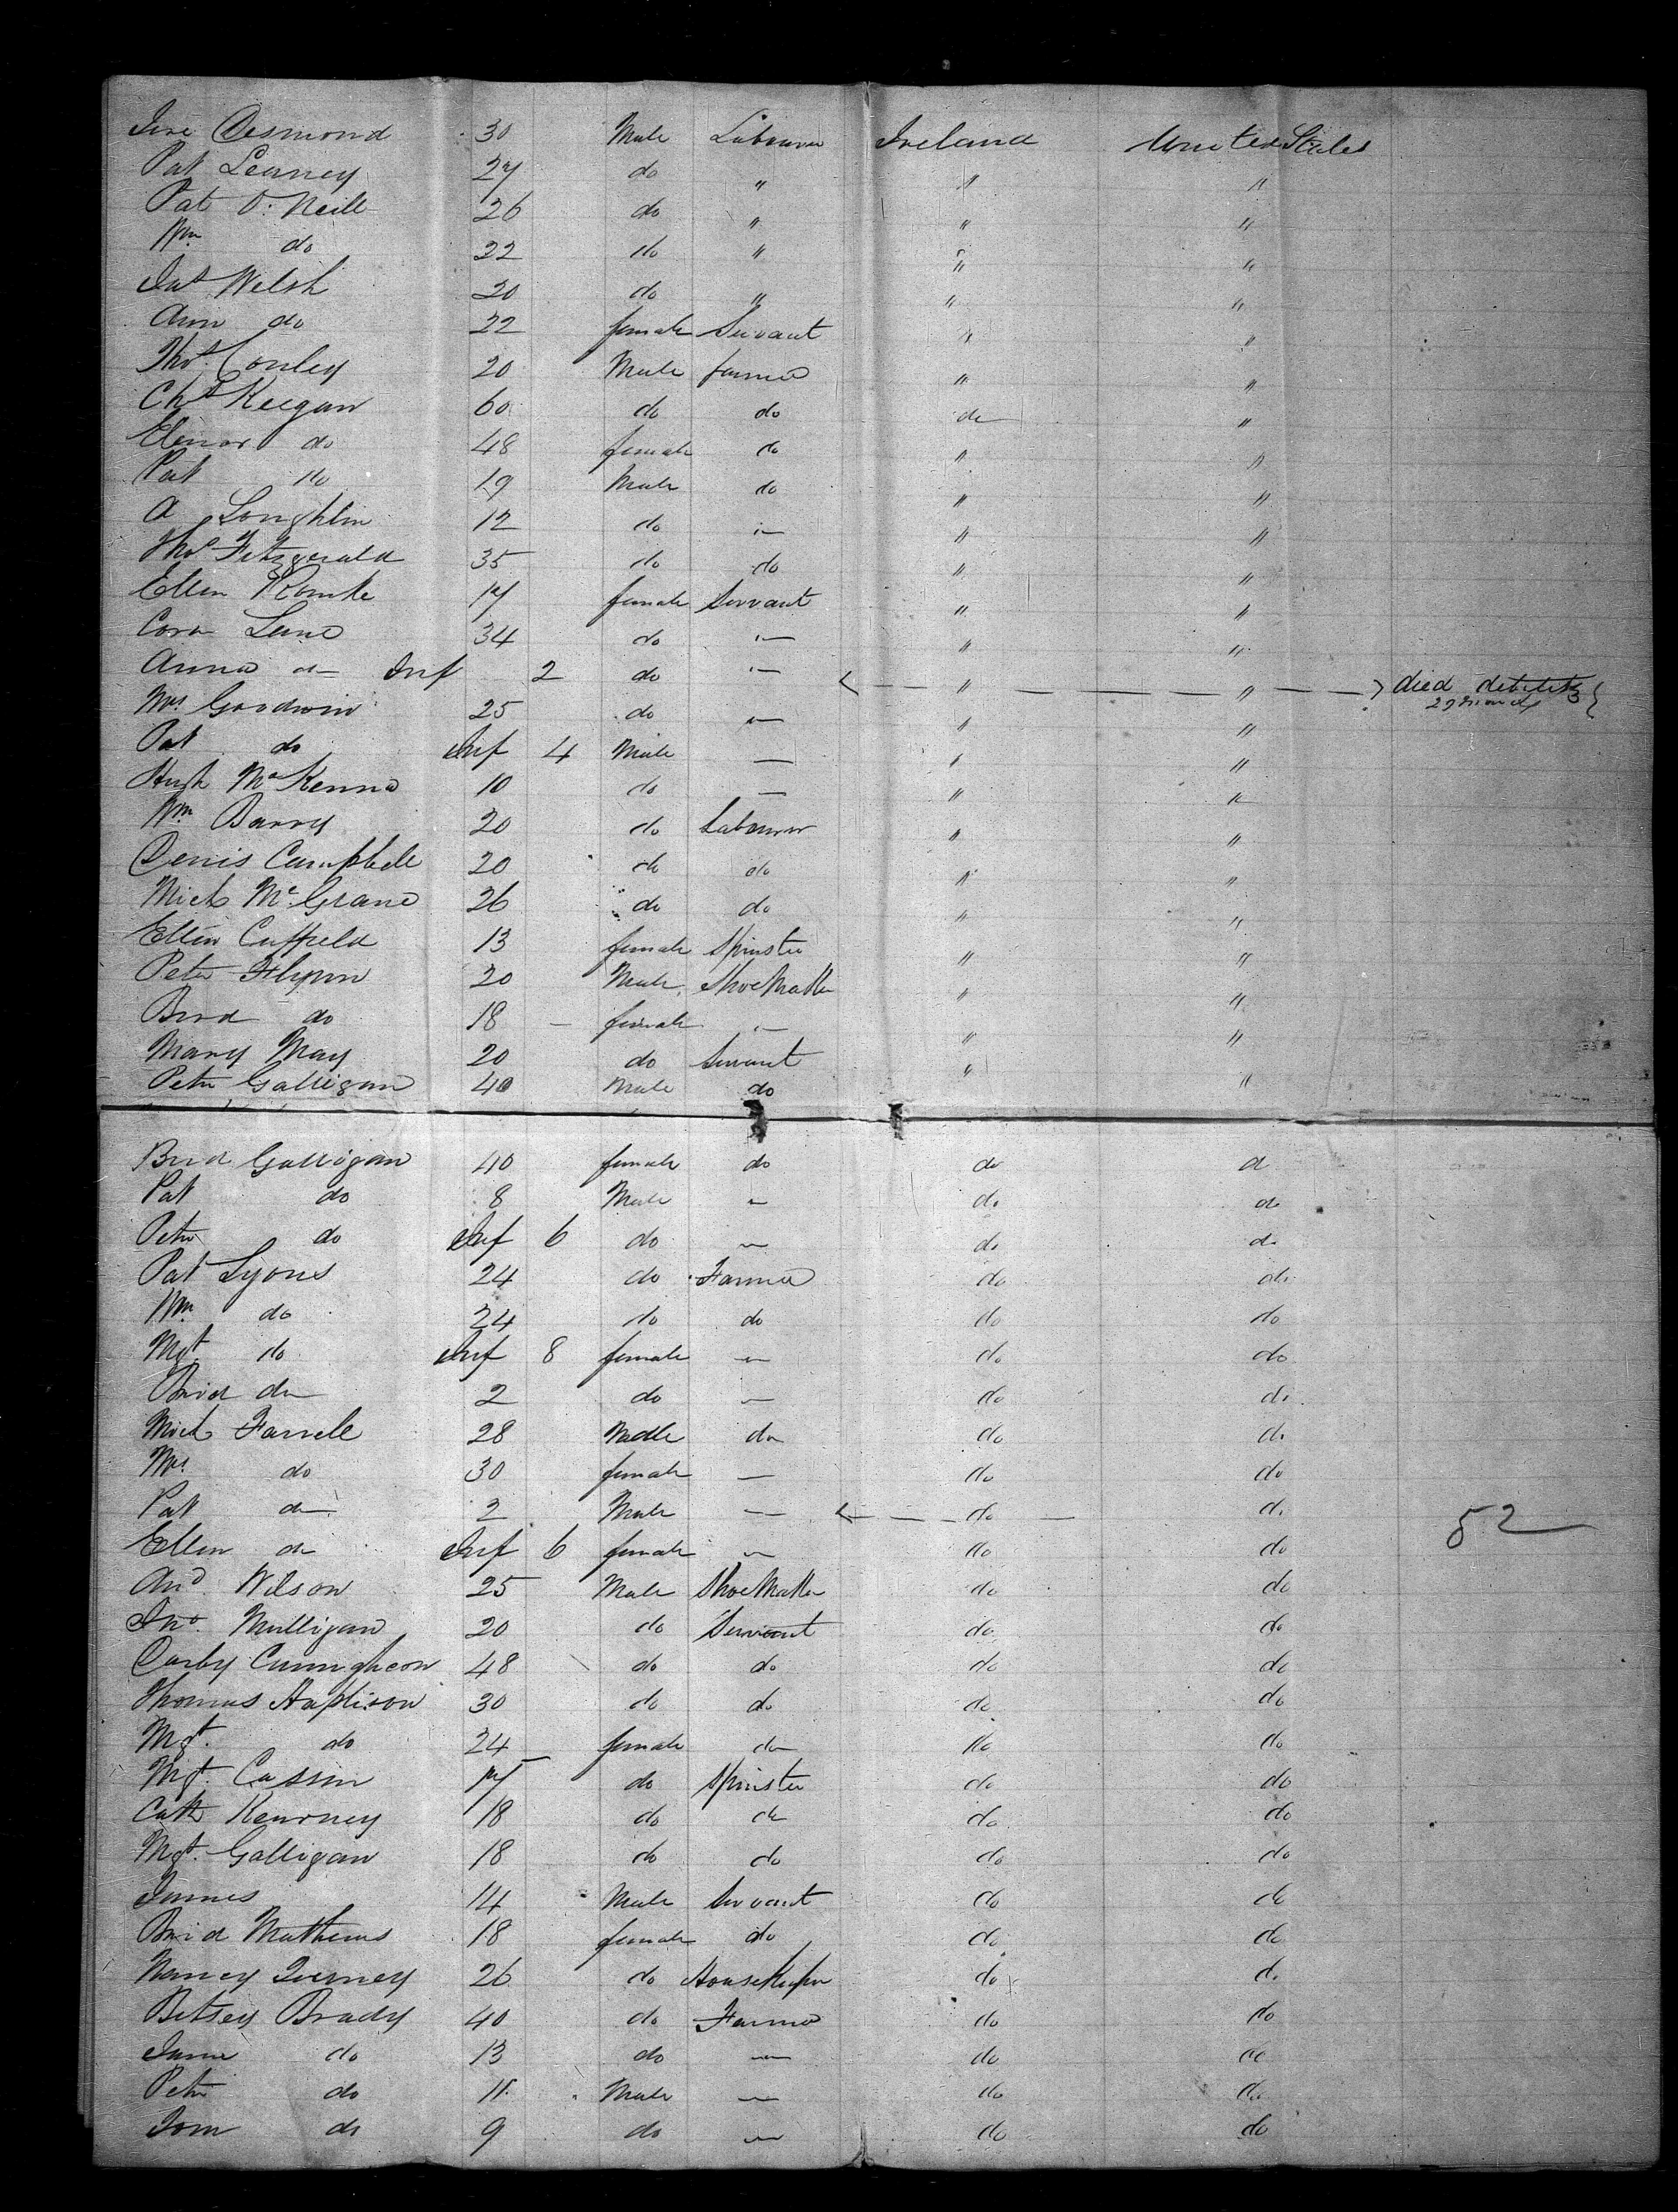 Jere Desmond 30 Male Labourer Ireland United States
Pat Learney 27 do " " "
Pat O'Neill 26 do " " "
Wm do 22 do " " "
Jas Welsh 20 do " " "
Ann do 22 female Servant " "
Thos Conley 20 Male farmer " "
Chs Keegan 60 do do do "
Elenor do 48 female do " "
Pat do 19 Male do " "
A Loughlin 12 do — " "
Thos Fitzgerald 35 do do " "
Ellen 17 female Servant " "
Cora Lane 34 do — " "
Anna do Inf 2 do — " " died debility
Mrs Goodwin 25 do — " "
Pat do Inf 4 Male — " "
Hugh McKenna 10 do — " "
Wm Barry 20 do Labourer " "
Denis Campbell 20 do do " "
Mich McGrane 26 do do " "
Ellen Cuffield 13 female Spinster " "
Peter Flynn 20 Male Shoe Maker " "
Brid do 18 — female — " "
Mary May 20 do Servant " "
Peter Galligan 40 Male do " "
Brid Galligan 40 female do do do
Pat do 8 Male — do do
Peter do Inf 6 do — do do
Pat Lyons 24 do Farmer do do
Wm do 24 do do do do
Mgt do Inf 8 female — do do
Brid do 2 do — do do
Mich Farrell 28 Male do do do
Mrs do 30 female — do do
Pat do 2 Male — do do 52
Ellen do Inf 6 female — do do
And Wilson 25 Male Shoe Maker do do
Jno Mulligan 20 do Servant do do
Darby Cunnigheon 48 do do do do
Thomas 30 do do do do
Mgt. do 24 female do do do
Mgt. Cassin 17 do Spinster do do
Cath Kearney 18 do do do do
Mgt. Galligan 18 do do do do
James 14 Male Servant do do
Brid Mathews 18 female do do do
Nancy 26 do House Keeper do do
Betsey Brady 40 do Farmer do do
Jane do 13 do — do do
Peter do 11 Male — do do
Tom do 9 do — do do